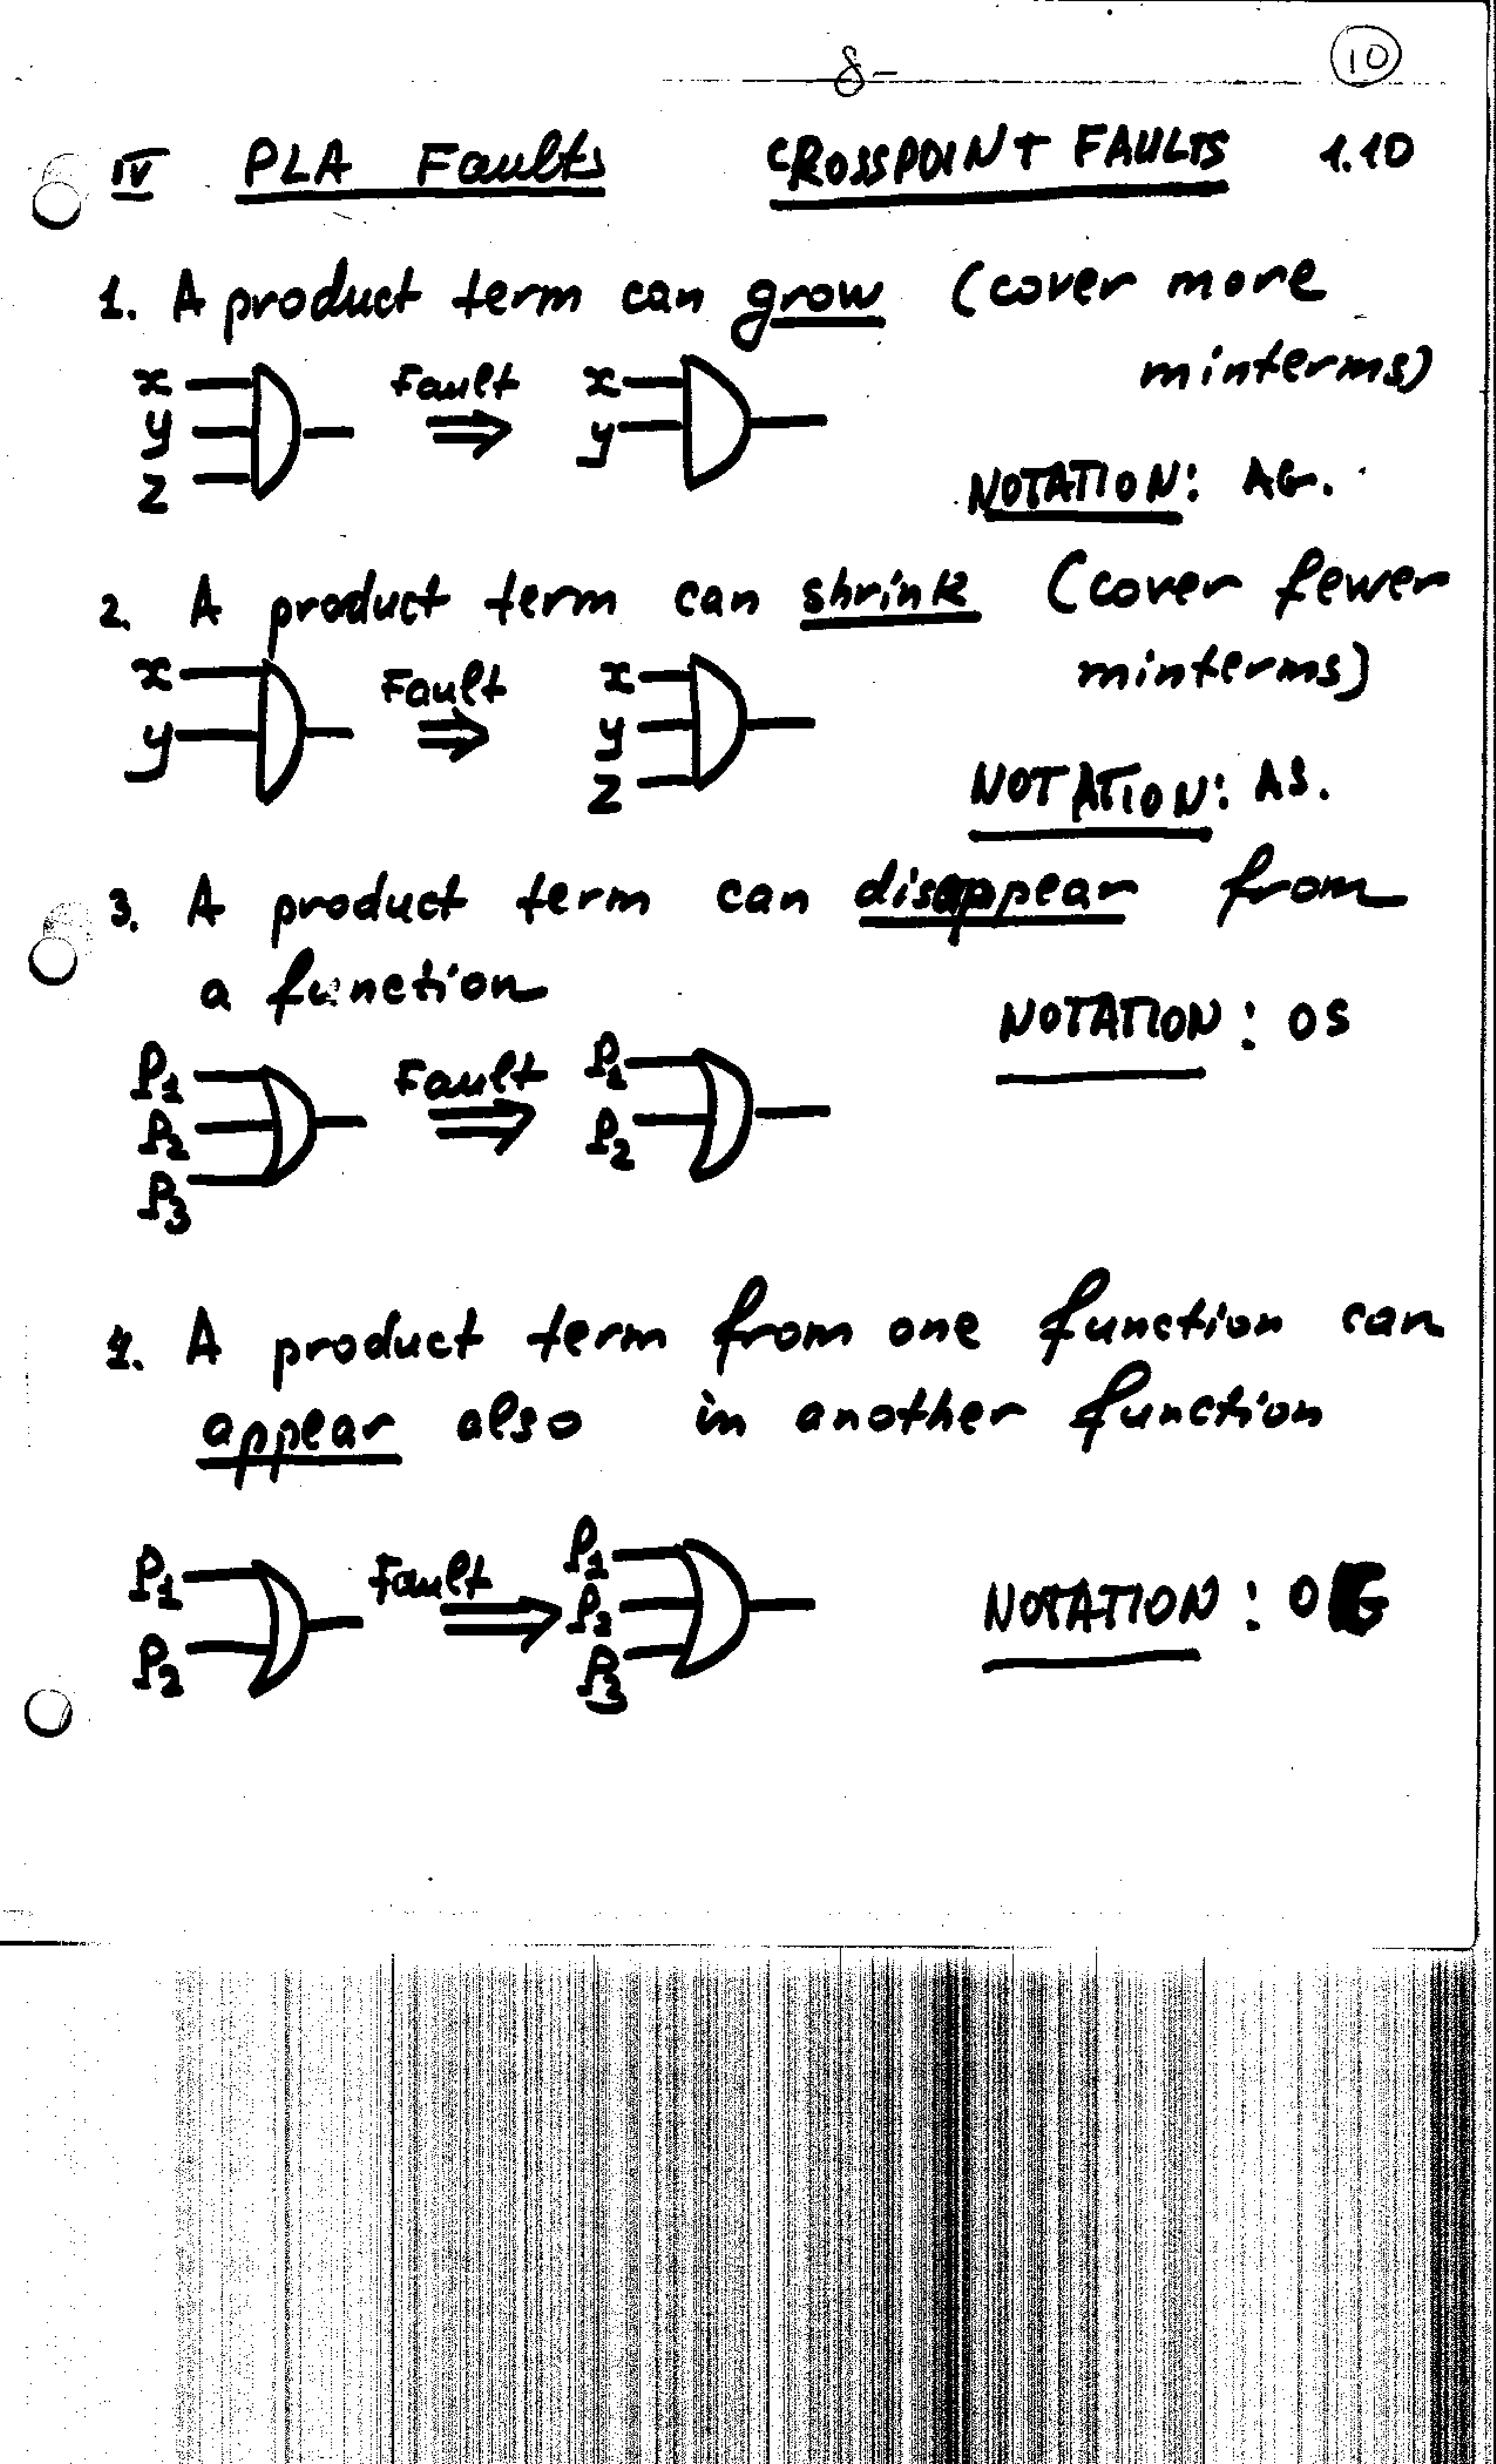 8-
10
IV PLA Faults CROSSPOINT FAULTS 1.10
1. A product term can grow (cover more
minterms)
x
y
z
Fault
x
y
NOTATION: AG.
2. A product term can shrink (cover fewer
minterms)
x
y
Fault
x
y
z
NOTATION: AS.
3. A product term can disappear from
a function
NOTATION: OS
P1
P2
P3
Fault
P1
P2
4. A product term from one function can
appear also in another function
P1
P2
Fault
P1
P2
P3
NOTATION: OG